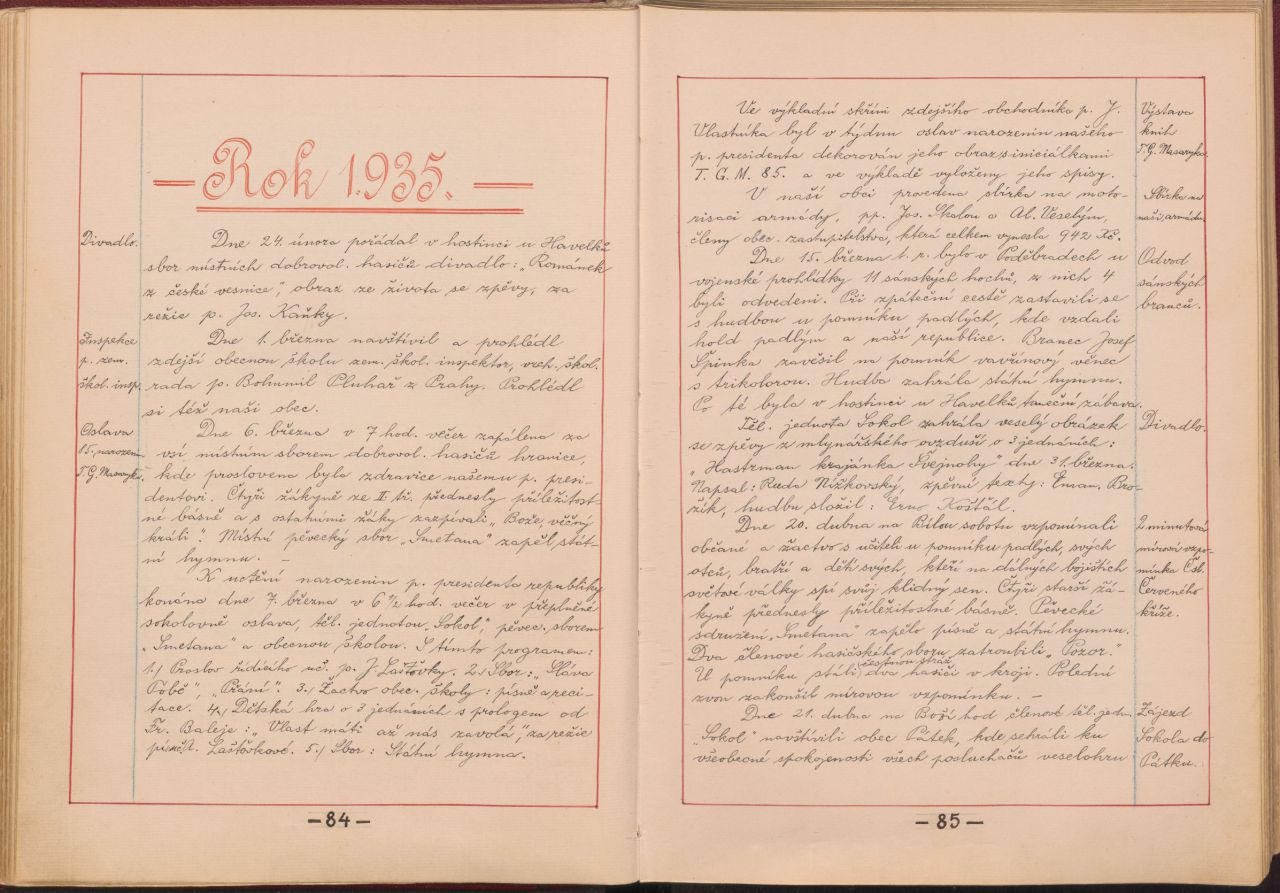 — Rok 1935. —
Divadlo.
Dne 24. února pořádal v hostinci u Havelků
sbor místních dobrovol. hasičů divadlo: „Románek
z české vesnice", obraz ze života se zpěvy, za
režie p. Jos. Kaňky.
Inspekce
p. zem.
škol. insp.
Dne 1. března navštívil a prohlédl
zdejší obecnou školu zem. škol. inspektor, vrch. škol.
rada p. Bohumil Pluhař z Prahy. Prohlédl
si též naši obec.
Oslava
85. narozenin
T. G. Masaryka.
Dne 6. března v 7 hod. večer zapálena za
vsí místním sborem dobrovol. hasičů hranice,
kde proslovena byla zdravice našemu p. presi-
dentovi. Čtyři žákyně ze II. tř. přednesly příležitost-
né básně a s ostatními žáky zazpívali „Bože, věčný
králi". Místní pěvecký sbor „Smetana" zapěl stát-
ní hymnu. —
K uctění narozenin p. presidenta republiky
konána dne 7. března v 6 ½ hod. večer v přeplněné
sokolovně oslava, těl. jednotou „Sokol", pěvec. sborem
„Smetana" a obecnou školou. S tímto programem:
1.) Proslov řídícího uč. p. J. Laštovky. 2.) Sbor: „Sláva
Tobě", „Přání". 3.) Žactvo obec. školy: písně a reci-
tace. 4.) Dětská hra o 3 jednáních s prologem od
Fr. Baleje: „Vlast máti až nás zavolá", za režie
Laštovkové. 5.) Sbor: Státní hymna.
— 84 —
Ve výkladní skříni zdejšího obchodníka p. J.
Vlastníka byl v týdnu oslav narozenin našého
p. presidenta dekorován jeho obraz s iniciálkami
T. G. M. 85. a ve výkladě vyloženy jeho spisy.
Výstava
knih
T. G. Masaryka.
V naší obci provedena sbírka na moto-
risaci armády, pp. Jos. Skalou a Al. Veselým,
členy obec. zastupitelstva, která celkem vynesla 942 Kč.
Sbírka na
naši armádu.
Dne 15. března t. r. bylo v Poděbradech u
vojenské prohlídky 11 sánských hochů, z nich 4
byli odvedeni. Při zpáteční cestě zastavili se
s hudbou u pomníku padlých, kde vzdali
hold padlým a naší republice. Branec Josef
Špinka zavěsil na pomník vavřínový věnec
s trikolorou. Hudba zahrála státní hymnu.
Po té byla v hostinci u Havelků taneční zábava.
Odvod
sánských
branců.
Těl. jednota Sokol zahrála veselý obrázek
se zpěvy z mlynářského ovzduší o 3 jednáních:
„Hastrman krajánka Švejnohy" dne 31. března.
Napsal: Ruda Nížkovský, zpěvní texty: Eman. Bro-
žík, hudbu složil: Erno Košťál.
Divadlo.
Dne 20. dubna na Bílou sobotu vzpomínali
občané a žactvo s učiteli u pomníku padlých, svých
otců, bratří a dětí svých, kteří na dálných bojištích
světové války spí svůj klidný sen. Čtyři starší žá-
kyně přednesly příležitostné básně. Pěvecké
sdružení „Smetana" zapělo písně a státní hymnu.
Dva členové hasičského sboru zatroubili „Pozor."
U pomníku stáli čestnou stráž dva hasiči v kroji. Polední
zvon zakončil mírovou vzpomínku. —
2 minutová
mírová vzpo-
mínka Čsl.
Červeného
kříže.
Dne 21. dubna na Boží hod členové těl. jedn.
„Sokol" navštívili obec Pátek, kde sehráli ku
všeobecné spokojenosti všech posluchačů veselohru
Zájezd
Sokola do
Pátku.
— 85 —